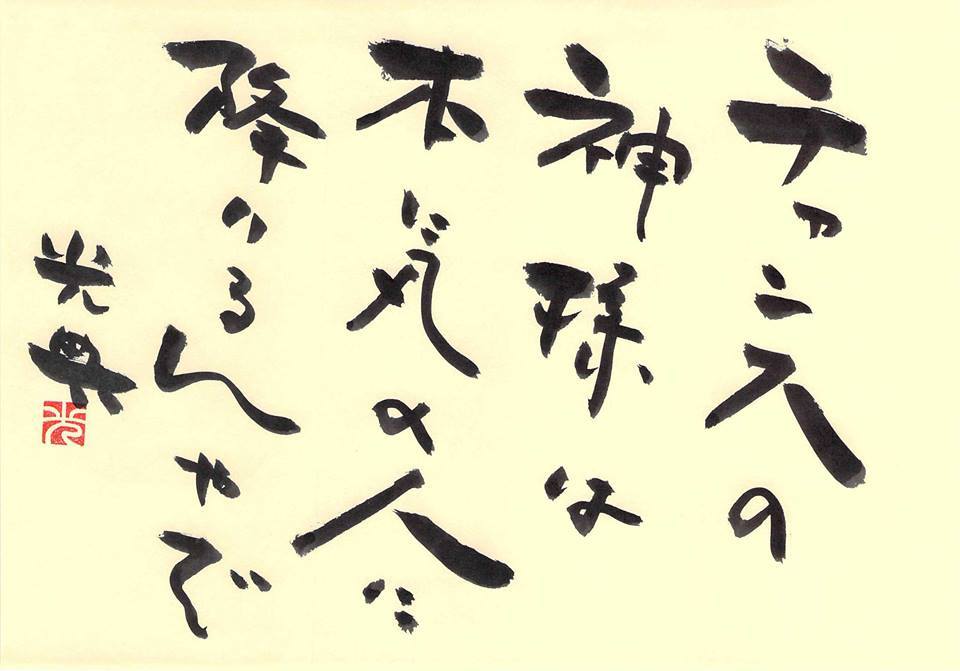 チャンスの
神様は
本気の人に
降りるんやで
光典
光